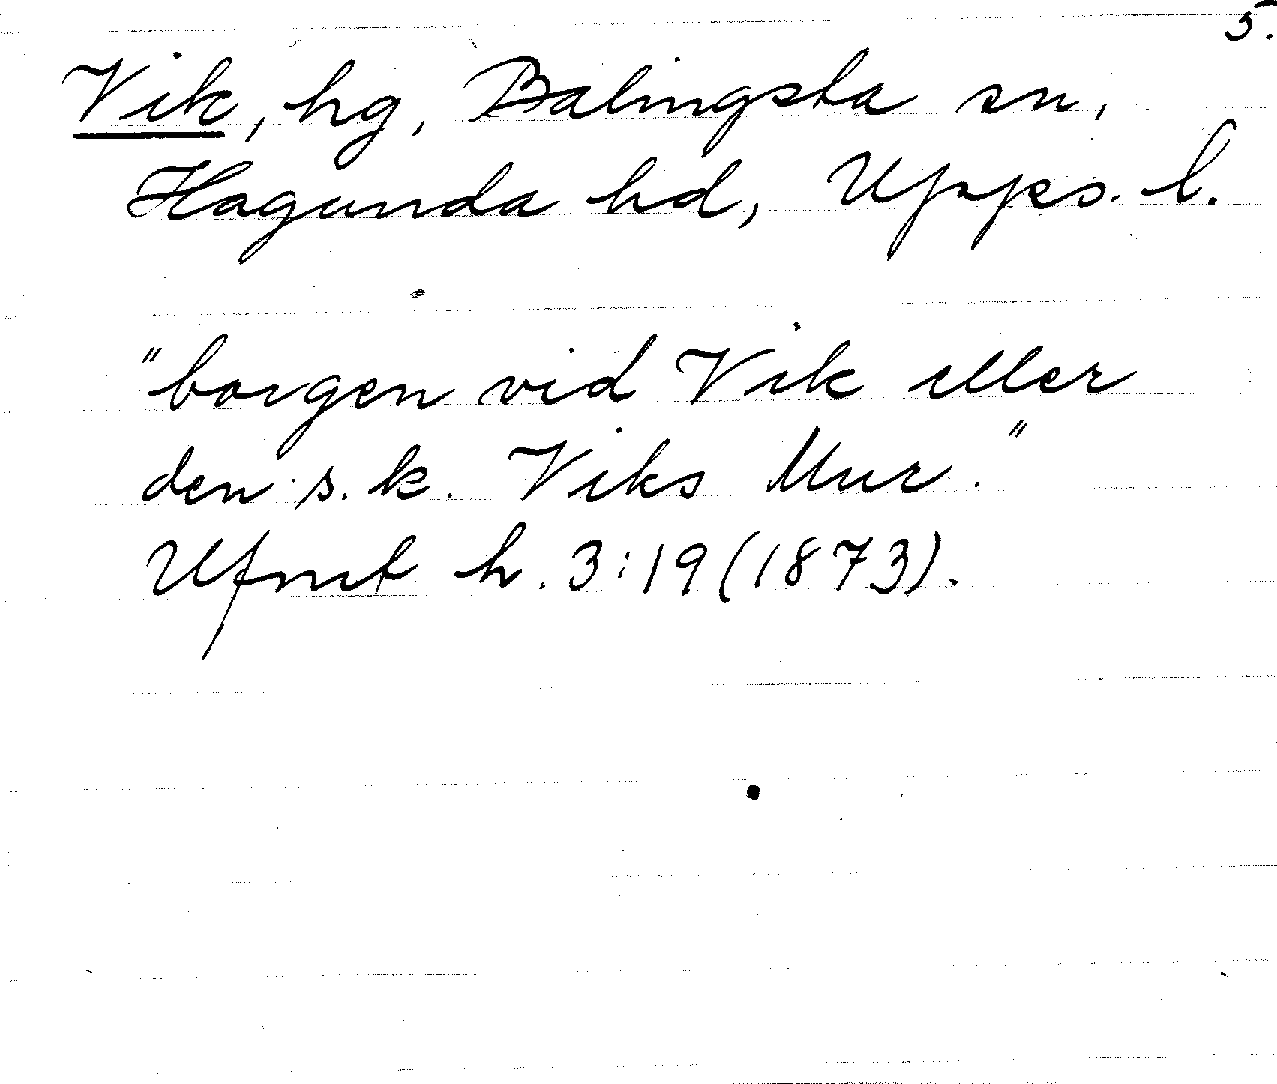 5.
Vik, hg, Balingsta sn,
Hagunda hd, Upps. l.
"borgen vid Vik eller
den s.k. Viks Mur."
Ufmt h. 3:19 (1873).